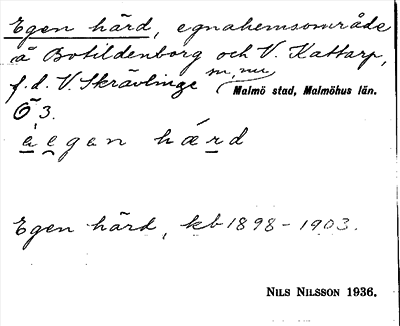 Egen härd, egnahemsområde
å Botildenborg och V. Kattarp,
f. d. V. Skrävlinge sn, nu
Malmö stad, Malmöhus län.
Ö 3.
egan hærd
Egen härd, kb 1898-1903.
NILS NILSSON 1936.